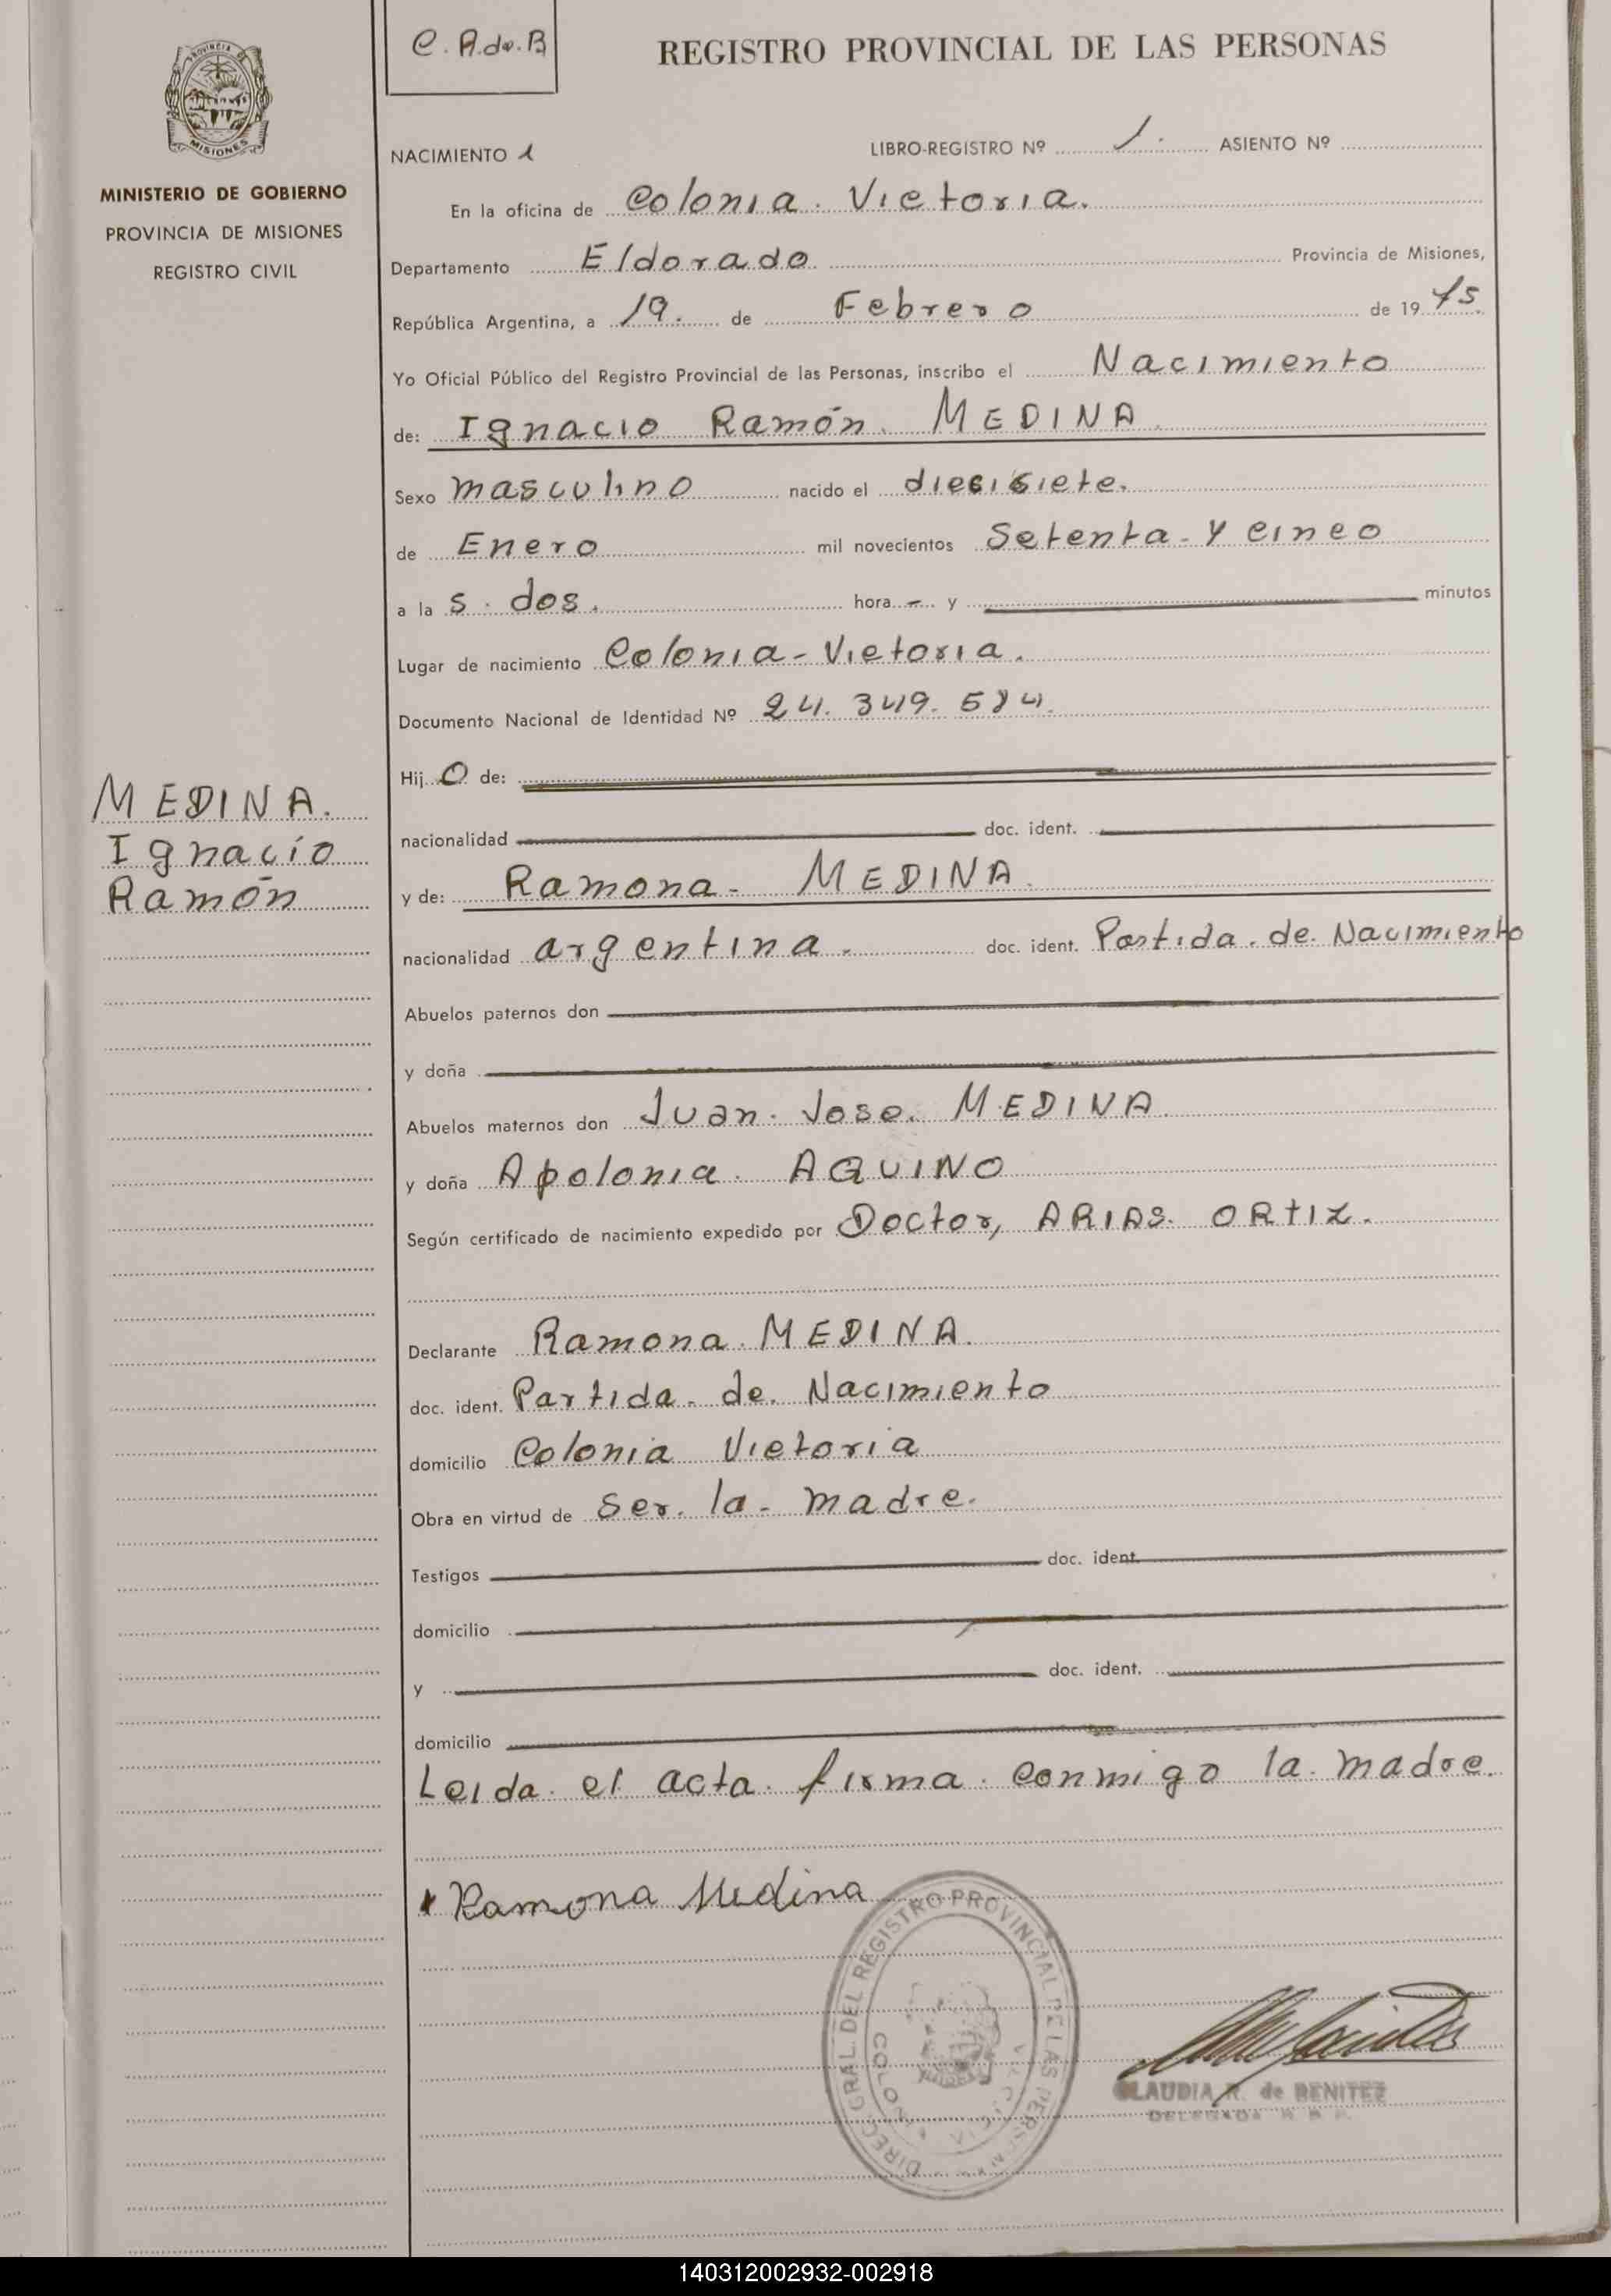 C. A. de. B
REGISTRO PROVINCIAL DE LAS PERSONAS
PROVINCIA DE
MISIONES
MINISTERIO DE GOBIERNO
PROVINCIA DE MISIONES
REGISTRO CIVIL
NACIMIENTO 1 LIBRO-REGISTRO Nº 1. ASIENTO Nº
En la oficina de Colonia. Victoria.
Departamento Eldorado Provincia de Misiones,
República Argentina, a 19. de Febrero de 19 75.
Yo Oficial Público del Registro Provincial de las Personas, inscribo el Nacimiento
de: Ignacio Ramón. MEDINA.
Sexo masculino nacido el diecisiete.
de Enero mil novecientos Setenta - y cinco
a la s. dos. hora - y minutos
Lugar de nacimiento Colonia - Victoria.
Documento Nacional de Identidad Nº 24. 349. 584.
Hij o de:
nacionalidad doc. ident.
MEDINA.
Ignacio
Ramón
y de: Ramona - MEDINA.
nacionalidad argentina. doc. ident. Partida. de. Nacimiento
Abuelos paternos don
y doña
Abuelos maternos don Juan. Jose. MEDINA.
y doña Apolonia. AQUINO
Según certificado de nacimiento expedido por Doctor, ARIAS. ORTIZ.
Declarante Ramona. MEDINA.
doc. ident. Partida - de. Nacimiento
domicilio Colonia Victoria
Obra en virtud de Ser. la - madre.
Testigos doc. ident.
domicilio
y doc. ident.
domicilio
Leida. el acta. firma. conmigo la. madre.
Ramona Medina
DIREC. GRAL. DEL REGISTRO PROVINCIAL DE LAS PERSONAS
COLONIA VICTORIA
CLAUDIA R. de BENITEZ
DELEGADA R. P. P.
140312002932-002918